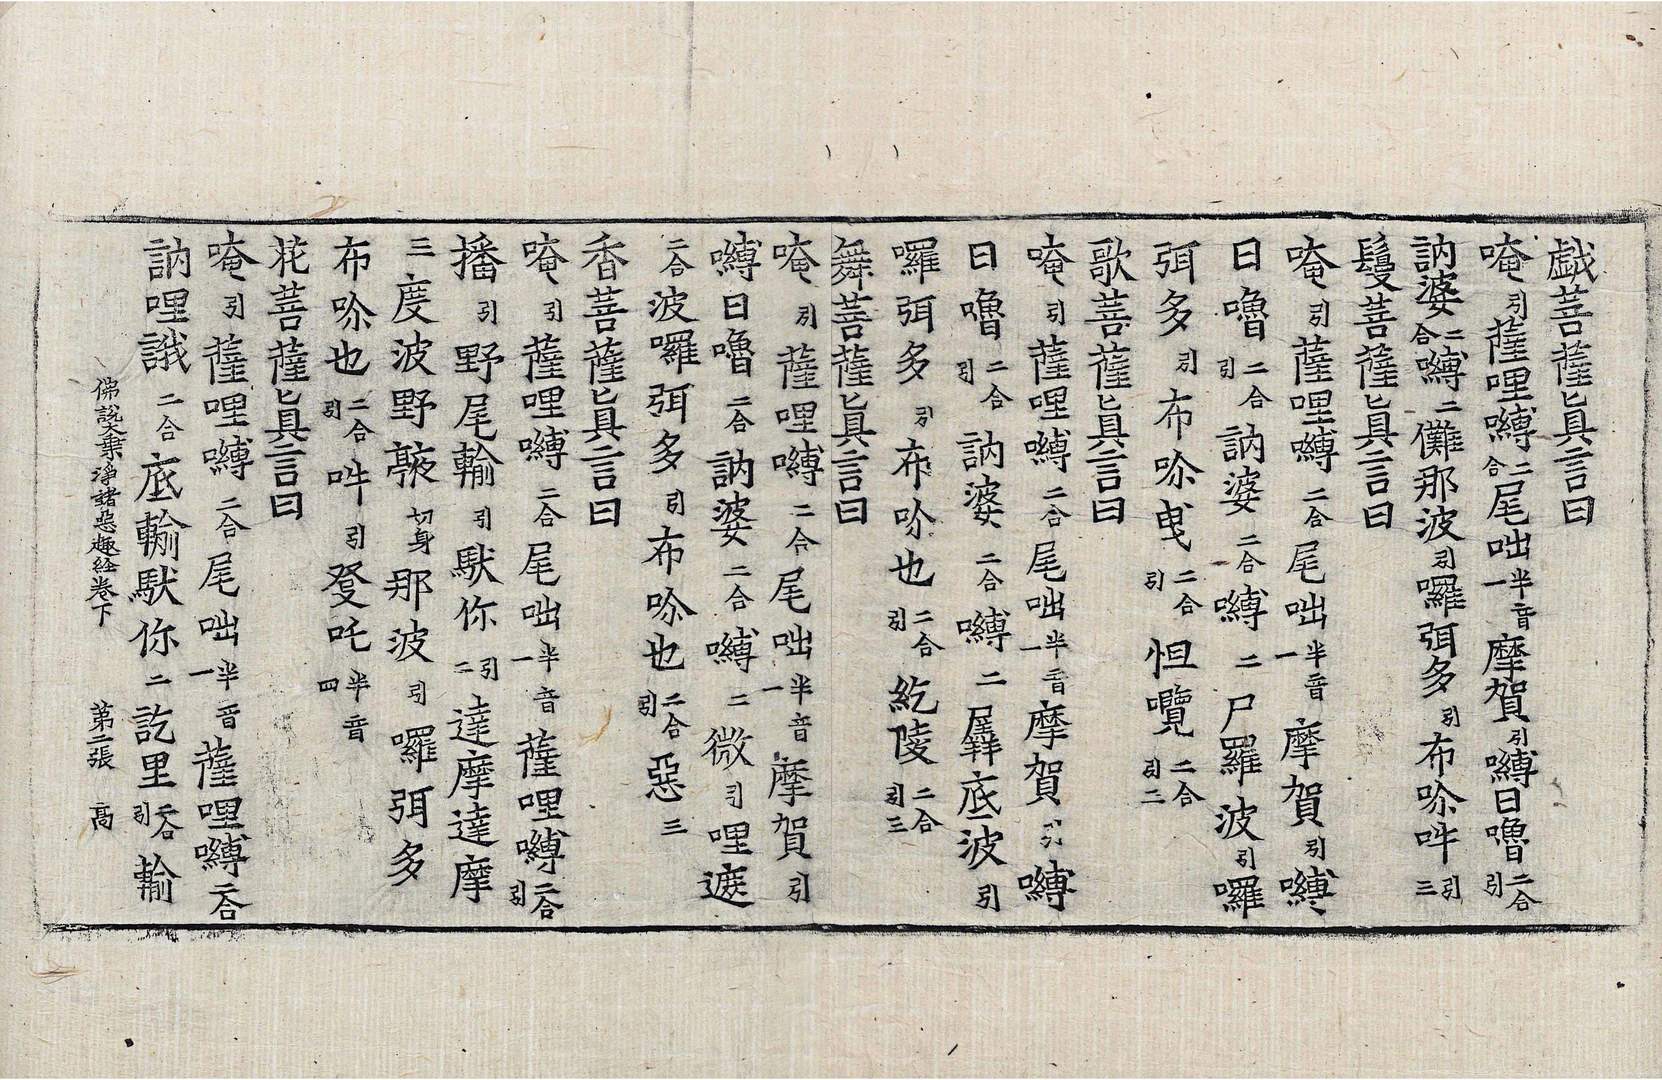 戯菩薩真言曰
唵引薩哩嚩二合尾咄半音一摩賀引嚩日嚕二合引
訥婆二合嚩二儺那波引囉弭多引布唹吽引三
鬘菩薩真言曰
唵引薩哩嚩二合尾咄半音一摩賀引嚩
日嚕二合引訥婆二合嚩二尸羅波引囉
弭多引布唹曳二合引怛囕二合引二
歌菩薩真言曰
唵引薩哩嚩二合尾咄半音一摩賀引嚩
日嚕二合引訥婆二合嚩二羼底波引
囉弭多引布唹也二合引紇陵二合引三
舞菩薩真言曰
唵引薩哩嚩二合尾咄半音一摩賀引
嚩日嚕二合訥婆二合嚩二微引哩遮
二合波囉弭多引布唹也二合引惡三
香菩薩真言曰
唵引薩哩嚩二合尾咄半音一薩哩嚩二合引
播引野尾輸引馱你引二達摩達摩
三度波野𪒠切身那波引囉弭多
布唹也二合引吽引癹吒半音四
花菩薩真言曰
唵引薩哩嚩二合尾咄半音一薩哩嚩二合
訥哩誐二合底輸馱你二訖里二合引輸
佛說大乘淨諸惡趣經卷下 第二張 髙